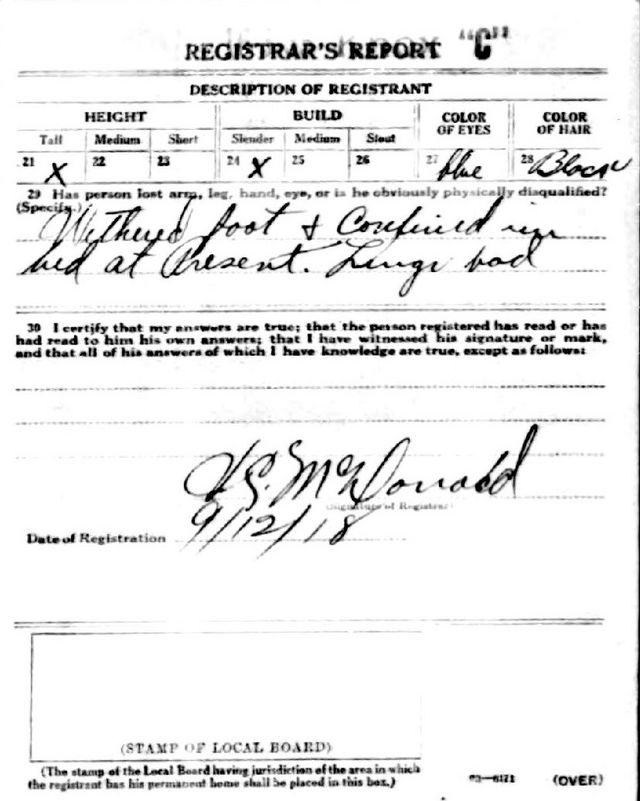 REGISTRAR'S REPORT "C"
DESCRIPTION OF REGISTRANT
HEIGHT BUILD COLOR OF EYES COLOR OF HAIR
Tall Medium Short Slender Medium Stout
21 X 22 23 24 X 25 26 27 blue 28 Black
29 Has person lost arm, leg, hand, eye, or is he obviously physically disqualified?
(Specify.)
Withered foot & Confined in
bed at Present. Lungs bad
30 I certify that my answers are true; that the person registered has read or has
had read to him his own answers; that I have witnessed his signature or mark,
and that all of his answers of which I have knowledge are true, except as follows:
McDonald
(Signature of Registrar)
Date of Registration 9/12/18
(STAMP OF LOCAL BOARD)
(The stamp of the Local Board having jurisdiction of the area in which
the registrant has his permanent home shall be placed in this box.)
03—6171 (OVER)